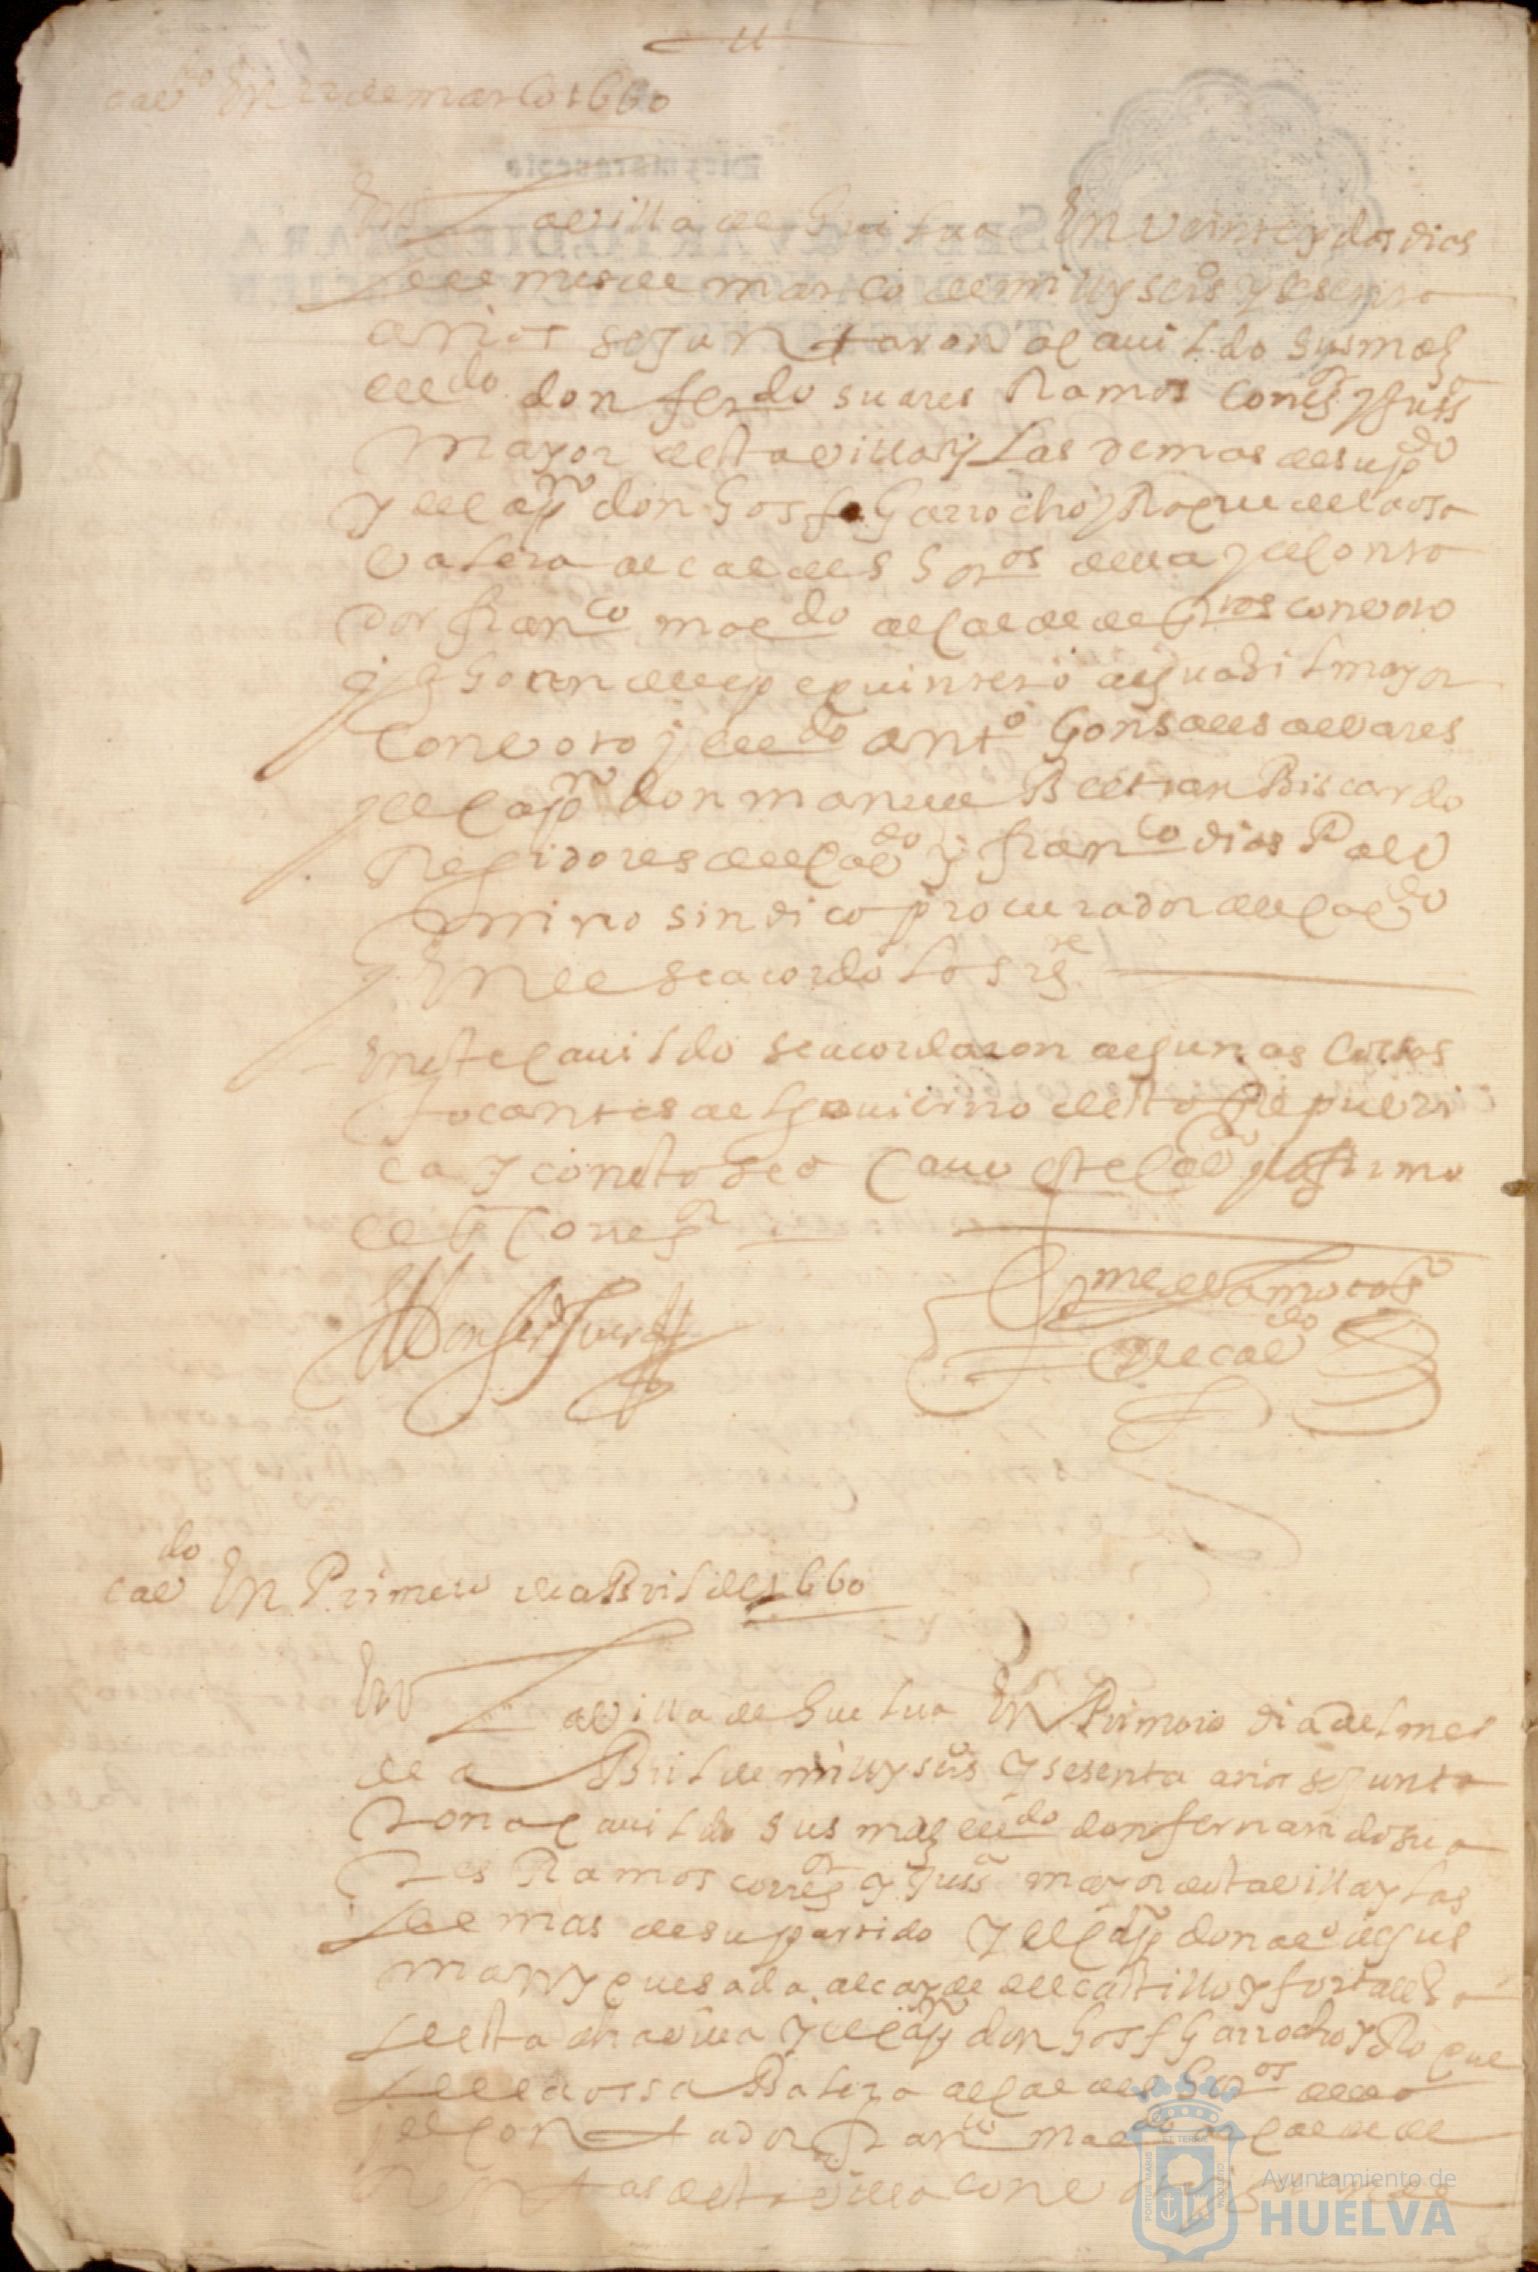 cavdo En 22 de março 1660
En la villa de Guelua En veinte y dos dias
del mes de março de mill y seis y sesenta
años se juntaron a cauildo sus mds
el ldo don ferdo suares Ramos corregr y Jussa
mayor desta villa y las demas de su pdo
y el capn don Gosf Garrocho y Roque de la osa
valera alcaldes hordos della y el conta
dor franco maldo alcalde de con voto
y Goan de quintero alguasil mayor
con voto y el ldo anto Gonsales albares
y el capn don manuel Beltran Biscardo
Regidores del cavdo y franco dias Pal
omino sindico procurador del cavdo
y En el se acordo lo sige
En este cauildo se acordaron algunas cossas
tocantes al gouierno desta Republi
ca y con esto se acauo este cavdo y lo firmo
el sr Corregr
Ldo Don ferdo Suares
del cavdo
cavdo En Primero de aBril de 1660
En la villa de Guelua En Primero dia del mes
de aBril de mill y seis y sesenta años se junta
ron a cauildo sus mds el ldo don fernando sua
res Ramos corregr y Jussa mayor desta villa y las
de mas de su partido y el capn don alo de gus
man y quesada alcayde del castillo y fortalesa
desta dha villa y el capn don Gosf Garrocho y Roque
de la ossa Balera alcaldes hordos della
y el contador franco maldo alcalde de
desta villa con voto
Ayuntamiento de
HUELVA